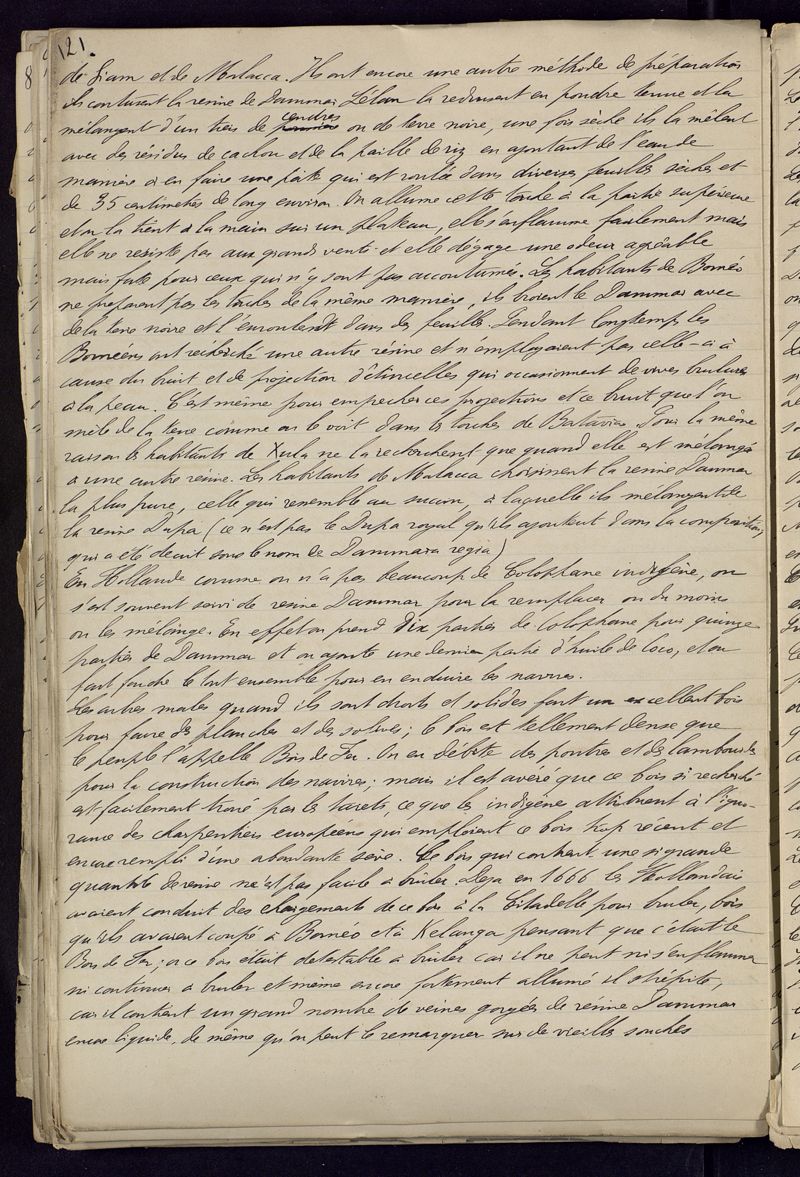 121.
de Siam et de Malacca. Ils ont encore une autre méthode de préparation
ils contusent la resine de Dammar Sélan la reduisent en poudre tenue et la
mélangent d'un tiers de cendres ou de terre noire, une fois sèche ils la mêlent
avec des résidus de cachou et de la paille de riz en ajoutant de l'eau de
manière à en faire une pâte qui est roulée dans diverses feuilles sèches et
de 35 centimètres de long environ. On allume cette torche à la partie supérieure
et on la tient à la main sur un plateau, elle s'enflamme facilement mais
elle ne resiste pas aux grands vents et elle dégage une odeur agréable
mais forte pour ceux qui n'y sont pas accoutumés. Les habitants de Bornéo
ne preparent pas les torches de la même manière, ils broient le Dammar avec
de la terre noire et l'enroulent dans des feuilles. Pendant longtemps les
Bornéens ont recherché une autre résine et n'employaient pas celle-ci à
cause du bruit et de projection d'étincelles qui occasionnent de vives brulures
à la peau. C'est même pour empecher ces projections et ce bruit que l'on
mêle de la terre comme on le voit dans les torches de Batavia. Pour la même
raison les habitants de Xula ne la recherchent que quand elle est mélangée
à une autre résine. Les habitants de Malacca choisissent la resine Dammar
la plus pure, celle qui ressemble au succin, à laquelle ils melangent de
la resine Dupa (ce n'est pas le Dupa royal qu'ils ajoutent dans la composition,
qui a été décrit sous le nom de Dammara regia)
En Hollande comme on n'a pas beaucoup de Colophane indigène, on
s'est souvent servi de resine Dammar pour la remplacer ou du moins
on les mélange. En effet on prend dix parties de colophane pour quinze
parties de Dammar et on ajoute une demi partie d'huile de coco, et on
fait fondre le tout ensemble pour en enduire les navires.
Les arbres males quand ils sont droits et solides font un excellent bois
pour faire des planches et des solives; le bois est tellement dense que
le peuple l'appelle Bois de Fer. On en débite des poutres et des lambourdes
pour la construction des navires; mais il est avéré que ce bois si recherché
est facilement troué par les tarets, ce que les indigènes attribuent à l'igno-
rance des charpentiers européens qui emploient ce bois trop récent et
encore rempli d'une abondante sève. Ce bois qui contient une si grande
quantité de resine n'est pas facile à brûler. Deja en 1666 les Hollandais
avaient conduit des chargements de ce bois à la Citadelle pour bruler, bois
qu'ils avaient coupé à Bornéo et à Kelanga pensant que c'était le
Bois de Fer; or ce bois était detestable à brûler car il ne peut ni s'enflammer
ni continuer à bruler et même encore fortement allumé il crépite,
car il contient un grand nombre de veines gorgées de resine Dammar
encore liquide, de même qu'on peut le remarquer sur de vieilles souches